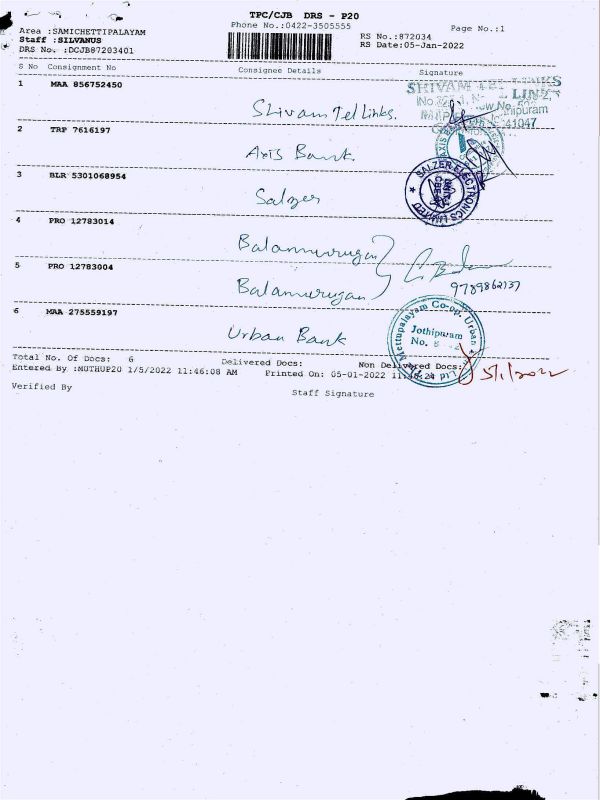 TPC/CJB DRS - P20
Phone No.:0422-3505555
Page No.:1
Area :SAMICHETTIPALAYAM
Staff :SILVANUS
DRS No. :DCJB87203401
RS No.:872034
RS Date:05-Jan-2022
S No Consignment No Consignee Details Signature
1 MAA 856752450 Shivam Tel Links.
SHIVAM TEL LINKS
2 TRP 7616197 Axis Bank.
3 BLR 5301068954 Salzer
SALZER ELECTRONICS LIMITED
4 PRO 12783014 Balamurugan
5 PRO 12783004 Balamurugan
9789862137
6 MAA 275559197 Urban Bank
Mettupalayam Co-op. Urban
Jothipuram
No.
Total No. Of Docs: 6 Delivered Docs: Non Delivered Docs:
Entered By :MUTHUP20 1/5/2022 11:46:08 AM Printed On: 05-01-2022 11:46:24
5/1/2022
Verified By Staff Signature